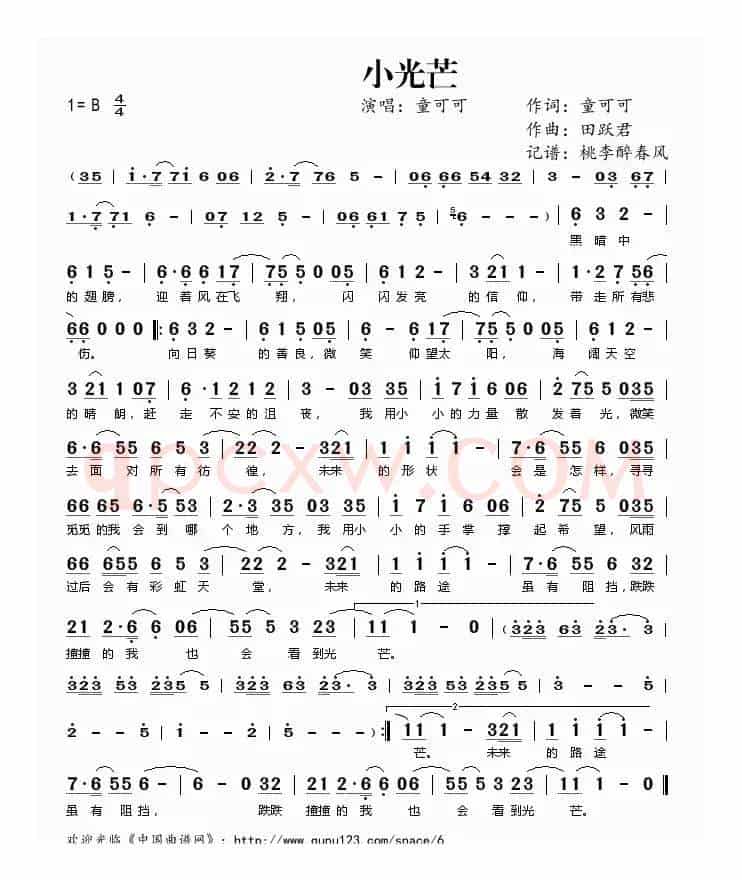 小光芒
1=B 4/4 演唱：童可可 作词：童可可
作曲：田跃君
记谱：桃李醉春风
(35 | 1·7 71 6 06 | 2·7 76 5 - | 06 66 54 32 | 3 - 03 67
1·7 71 6 - | 07 12 5 - | 06 61 7 5 | 6 - - - ) | 6 3 2 -
黑暗中
6 1 5 - | 6·6 6 17 | 75 5 0 05 | 6 1 2 - | 3 21 1 - | 1·2 75 56
的翅膀， 迎着风在飞 翔， 闪 闪发亮 的信仰， 带走所有悲
66 0 0 0 ‖: 6 3 2 - | 6 1 5 05 | 6 - 6 17 | 75 5 0 05 | 6 1 2 -
伤。 向日葵 的善良，微 笑 仰望太 阳， 海 阔天空
3 21 1 07 | 6·1 21 2 | 3 - 03 35 | 1 7 1 6 06 | 2 75 5 035
的晴朗，赶 走 不安的沮 夜， 我 用小 小的力量 散 发着光，微笑
6·6 55 6 5 3 | 22 2 - 321 | 1 1 1 - | 7·6 55 5 035
去面 对所有彷 徨， 未来 的形状 会是 怎样，寻寻
66 65 6·5 53 | 2·3 35 03 35 | 1 7 1 6 06 | 2 75 5 035
觅觅的我 会到 哪个地方，我 用小 小的手掌 撑 起希望，风雨
66 655 6 5 3 | 22 2 - 321 | 1 1 1 - | 7·6 55 6 32
过后 会有 彩虹天 堂， 未来 的路途 虽有 阻挡，跌跌
1
21 2·6 6 06 | 55 5 3 23 | 11 1 - 0 | (323 63 23·3
撞撞的我 也 会 看到光 芒。
323 53 235 5 | 323 63 23·3 | 323 53 235 5 | 3 - - 5
2
2 - - 5 | 1 - - 2 | 5 - - - ) :‖ 11 1 - 321 | 1 1 1 -
芒。 未来 的路途
7·6 55 6 - | 6 - 0 32 | 21 2·6 6 06 | 55 5 3 23 | 11 1 - 0 ‖
虽有 阻挡， 跌跌 撞撞的我 也 会 看到光 芒。
qpcxw.COM
欢迎光临《中国曲谱网》：http://www.qupu123.com/space/6